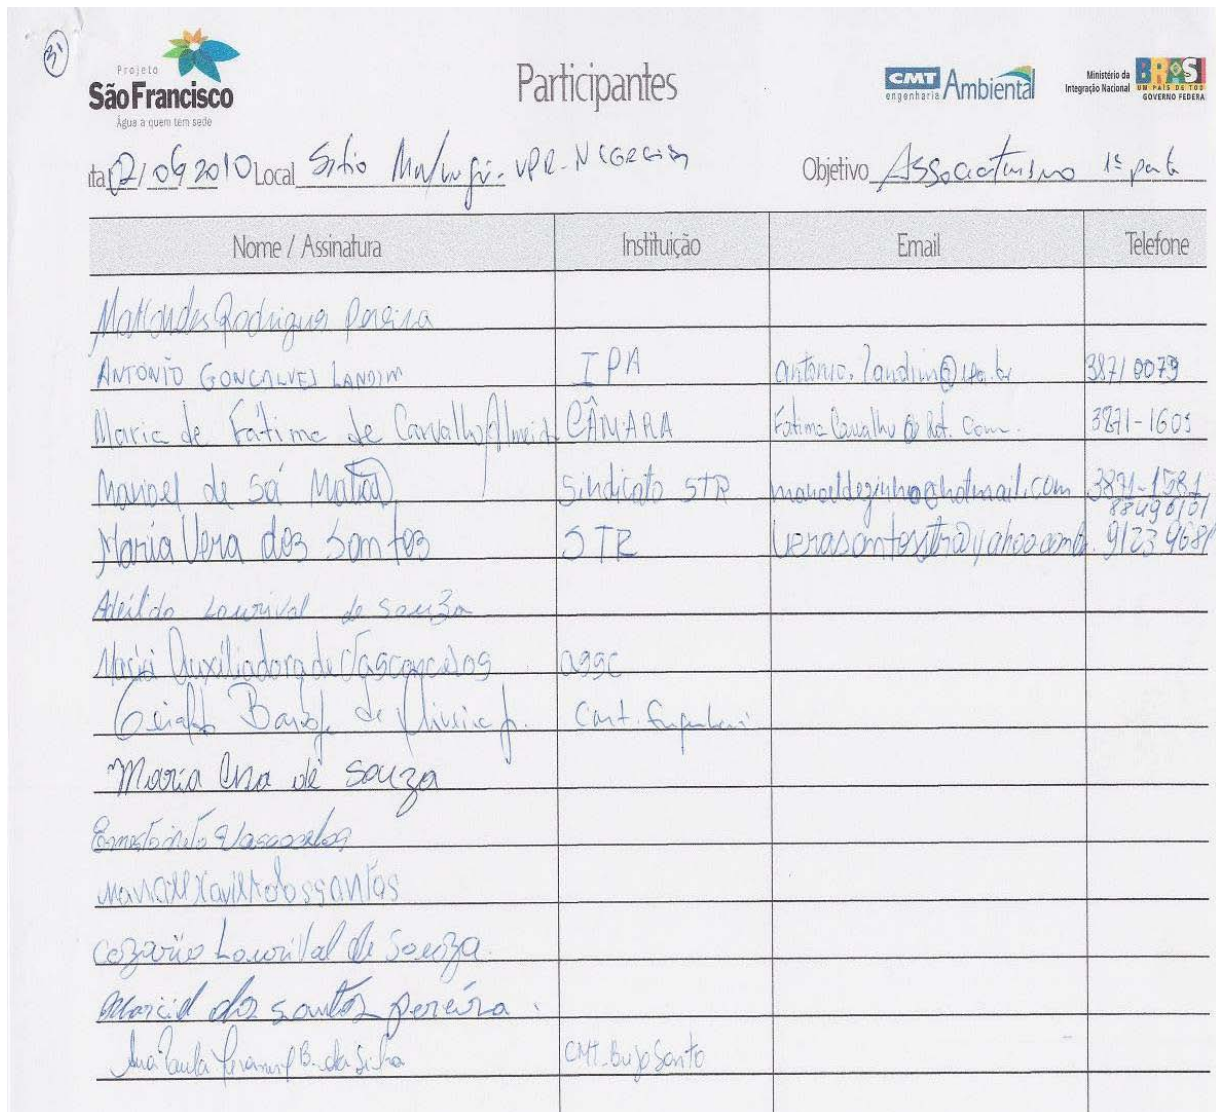 3ª
Projeto
São Francisco
Água a quem tem sede
Participantes
CMT Ambiental
engenharia
Ministério da
Integração Nacional
BRASI
UM PAÍS DE TOD
GOVERNO FEDERA
ta 02/09/2010 Local Sitio Malungú - VPR - Objetivo Associativismo 1ª parte
Nome / Assinatura Instituição Email Telefone
Rodrigues Pereira
ANTONIO GONCALVES LANDIM IPA antonio.landim@ipa.br 3871 0079
Maria de Fátima de Carvalho Almeida CÂMARA Fatima Carvalho @ hot. Com. 3871-1605
Manoel de Sá Sindicato STR manoeldezinho@hotmail.com 3871-1581
88496101
Maria Vera dos Santos STR verasantosstr@yahoo.com.br 9123 9681
Adeildo Lourival de Souza
Maria Auxiliadora de Vasconcelos assc
Geraldo Barbosa de Oliveira Jr.
Maria de Souza
Ernesto Neto Vasconcelos
Manoel Xavier dos Santos
Cezario Lourival de Souza.
dos santos pereira.
Ana Paula B. da Silva CMT. Brejo Santo